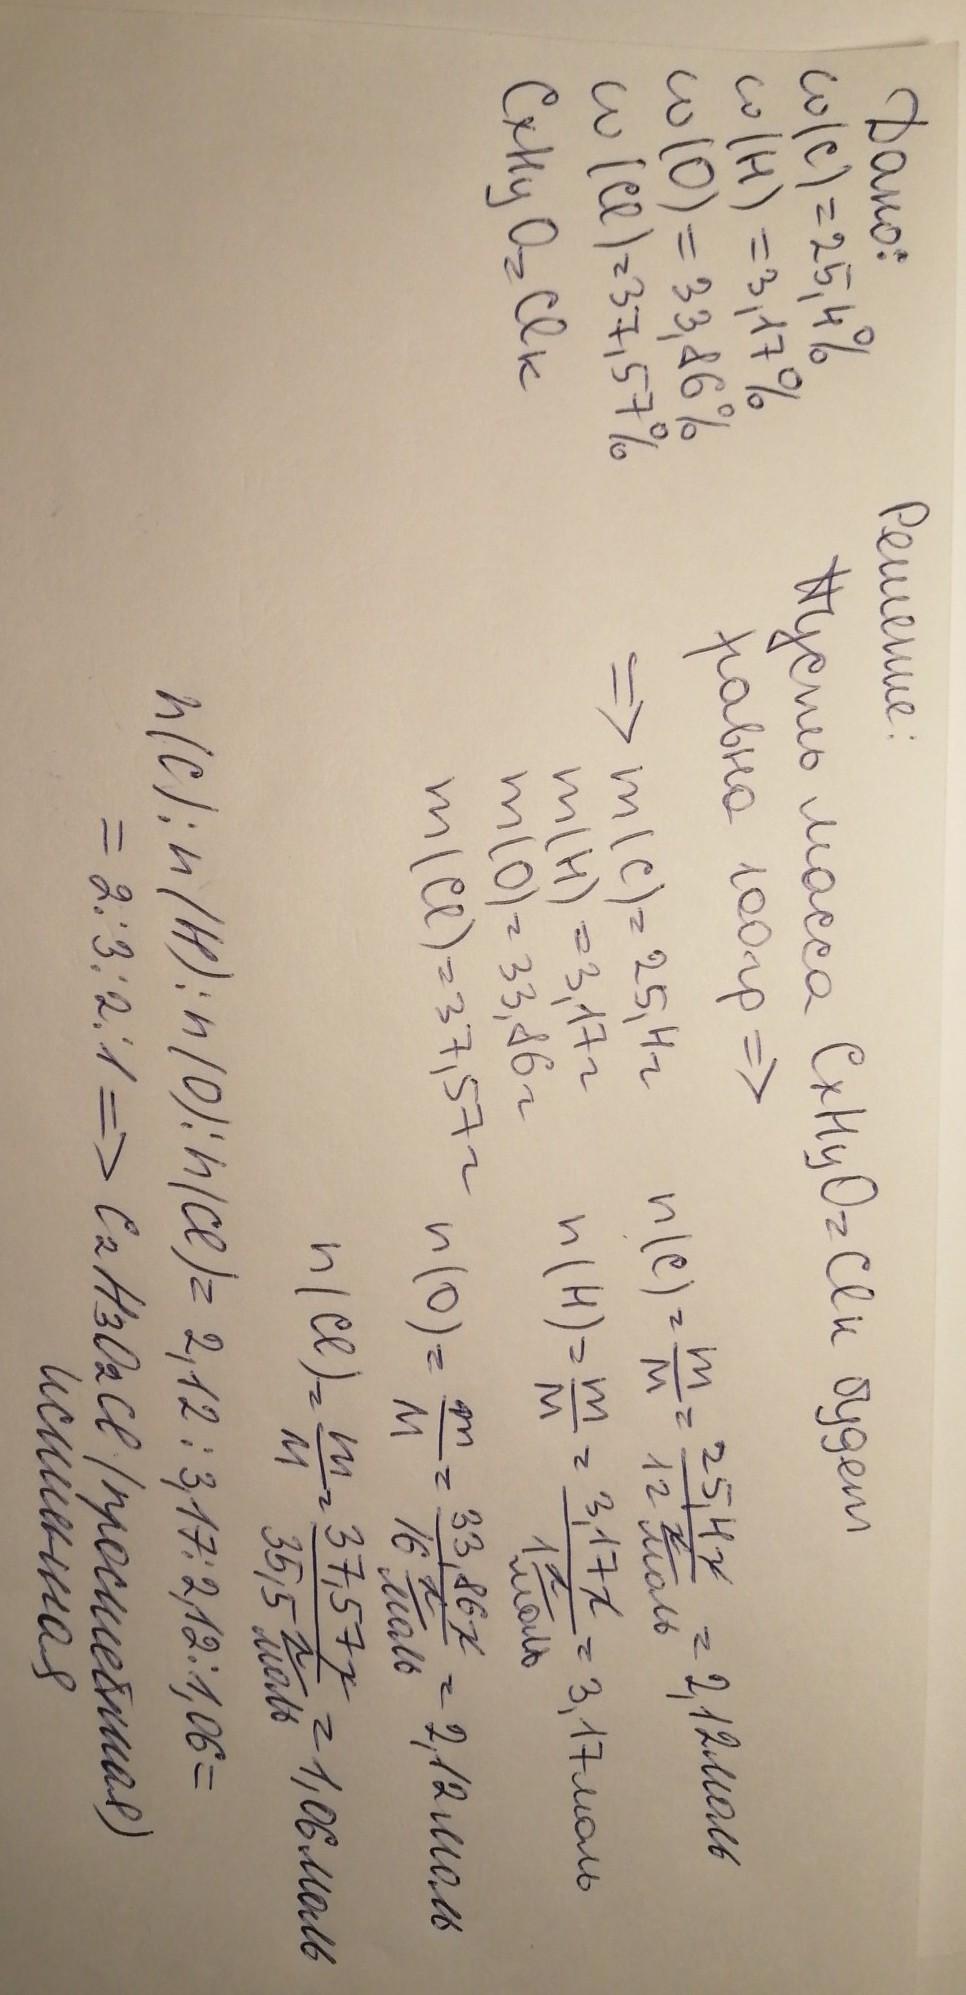 Дано:
ω(C)=25,4%
ω(H)=3,17%
ω(O)=33,86%
ω(Cl)=37,57%
CxHyOzClк
Решение:
Пусть масса CxHyOzClк будет
равна 100гр =>
=> m(C)=25,4г
m(H)=3,17г
m(O)=33,86г
m(Cl)=37,57г
n(C)=m/M=25,4г/12 г/моль=2,12моль
n(H)=m/M=3,17г/1 г/моль=3,17моль
n(O)=m/M=33,86г/16 г/моль=2,12моль
n(Cl)=m/M=37,57г/35,5 г/моль=1,06моль
n(C):n(H):n(O):n(Cl)=2,12:3,17:2,12:1,06=
=2:3:2:1=>C2H3O2Cl(простейшая)
истинная